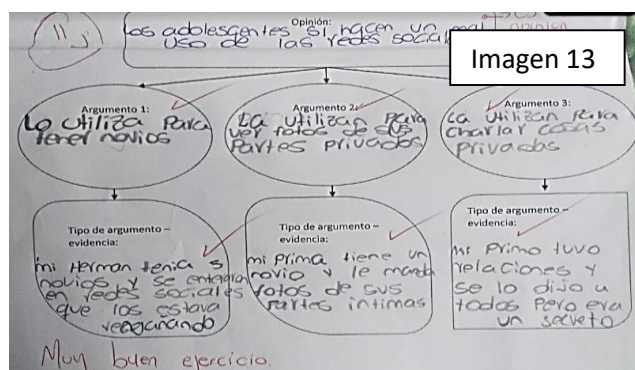 Opinión:
Los adolescentes si hacen un mal
uso de las redes social
opinion
Imagen 13
Argumento 1:
Lo utiliza para
tener novios
Argumento 2:
La utilizan para
ver fotos de sus
Partes privadas
Argumento 3:
La utilizan para
charlar cosas
privadas
Tipo de argumento –
evidencia:
mi Herman tenia 5
novios y se enteraron
en redes sociales
que los estava
Tipo de argumento –
evidencia:
mi prima tiene un
novio y le manda
fotos de sus
Partes intimas
Tipo de argumento –
evidencia:
mi Primo tuvo
relaciones y
se lo dijo a
todos Pero era
un secreto
Muy buen ejercicio.